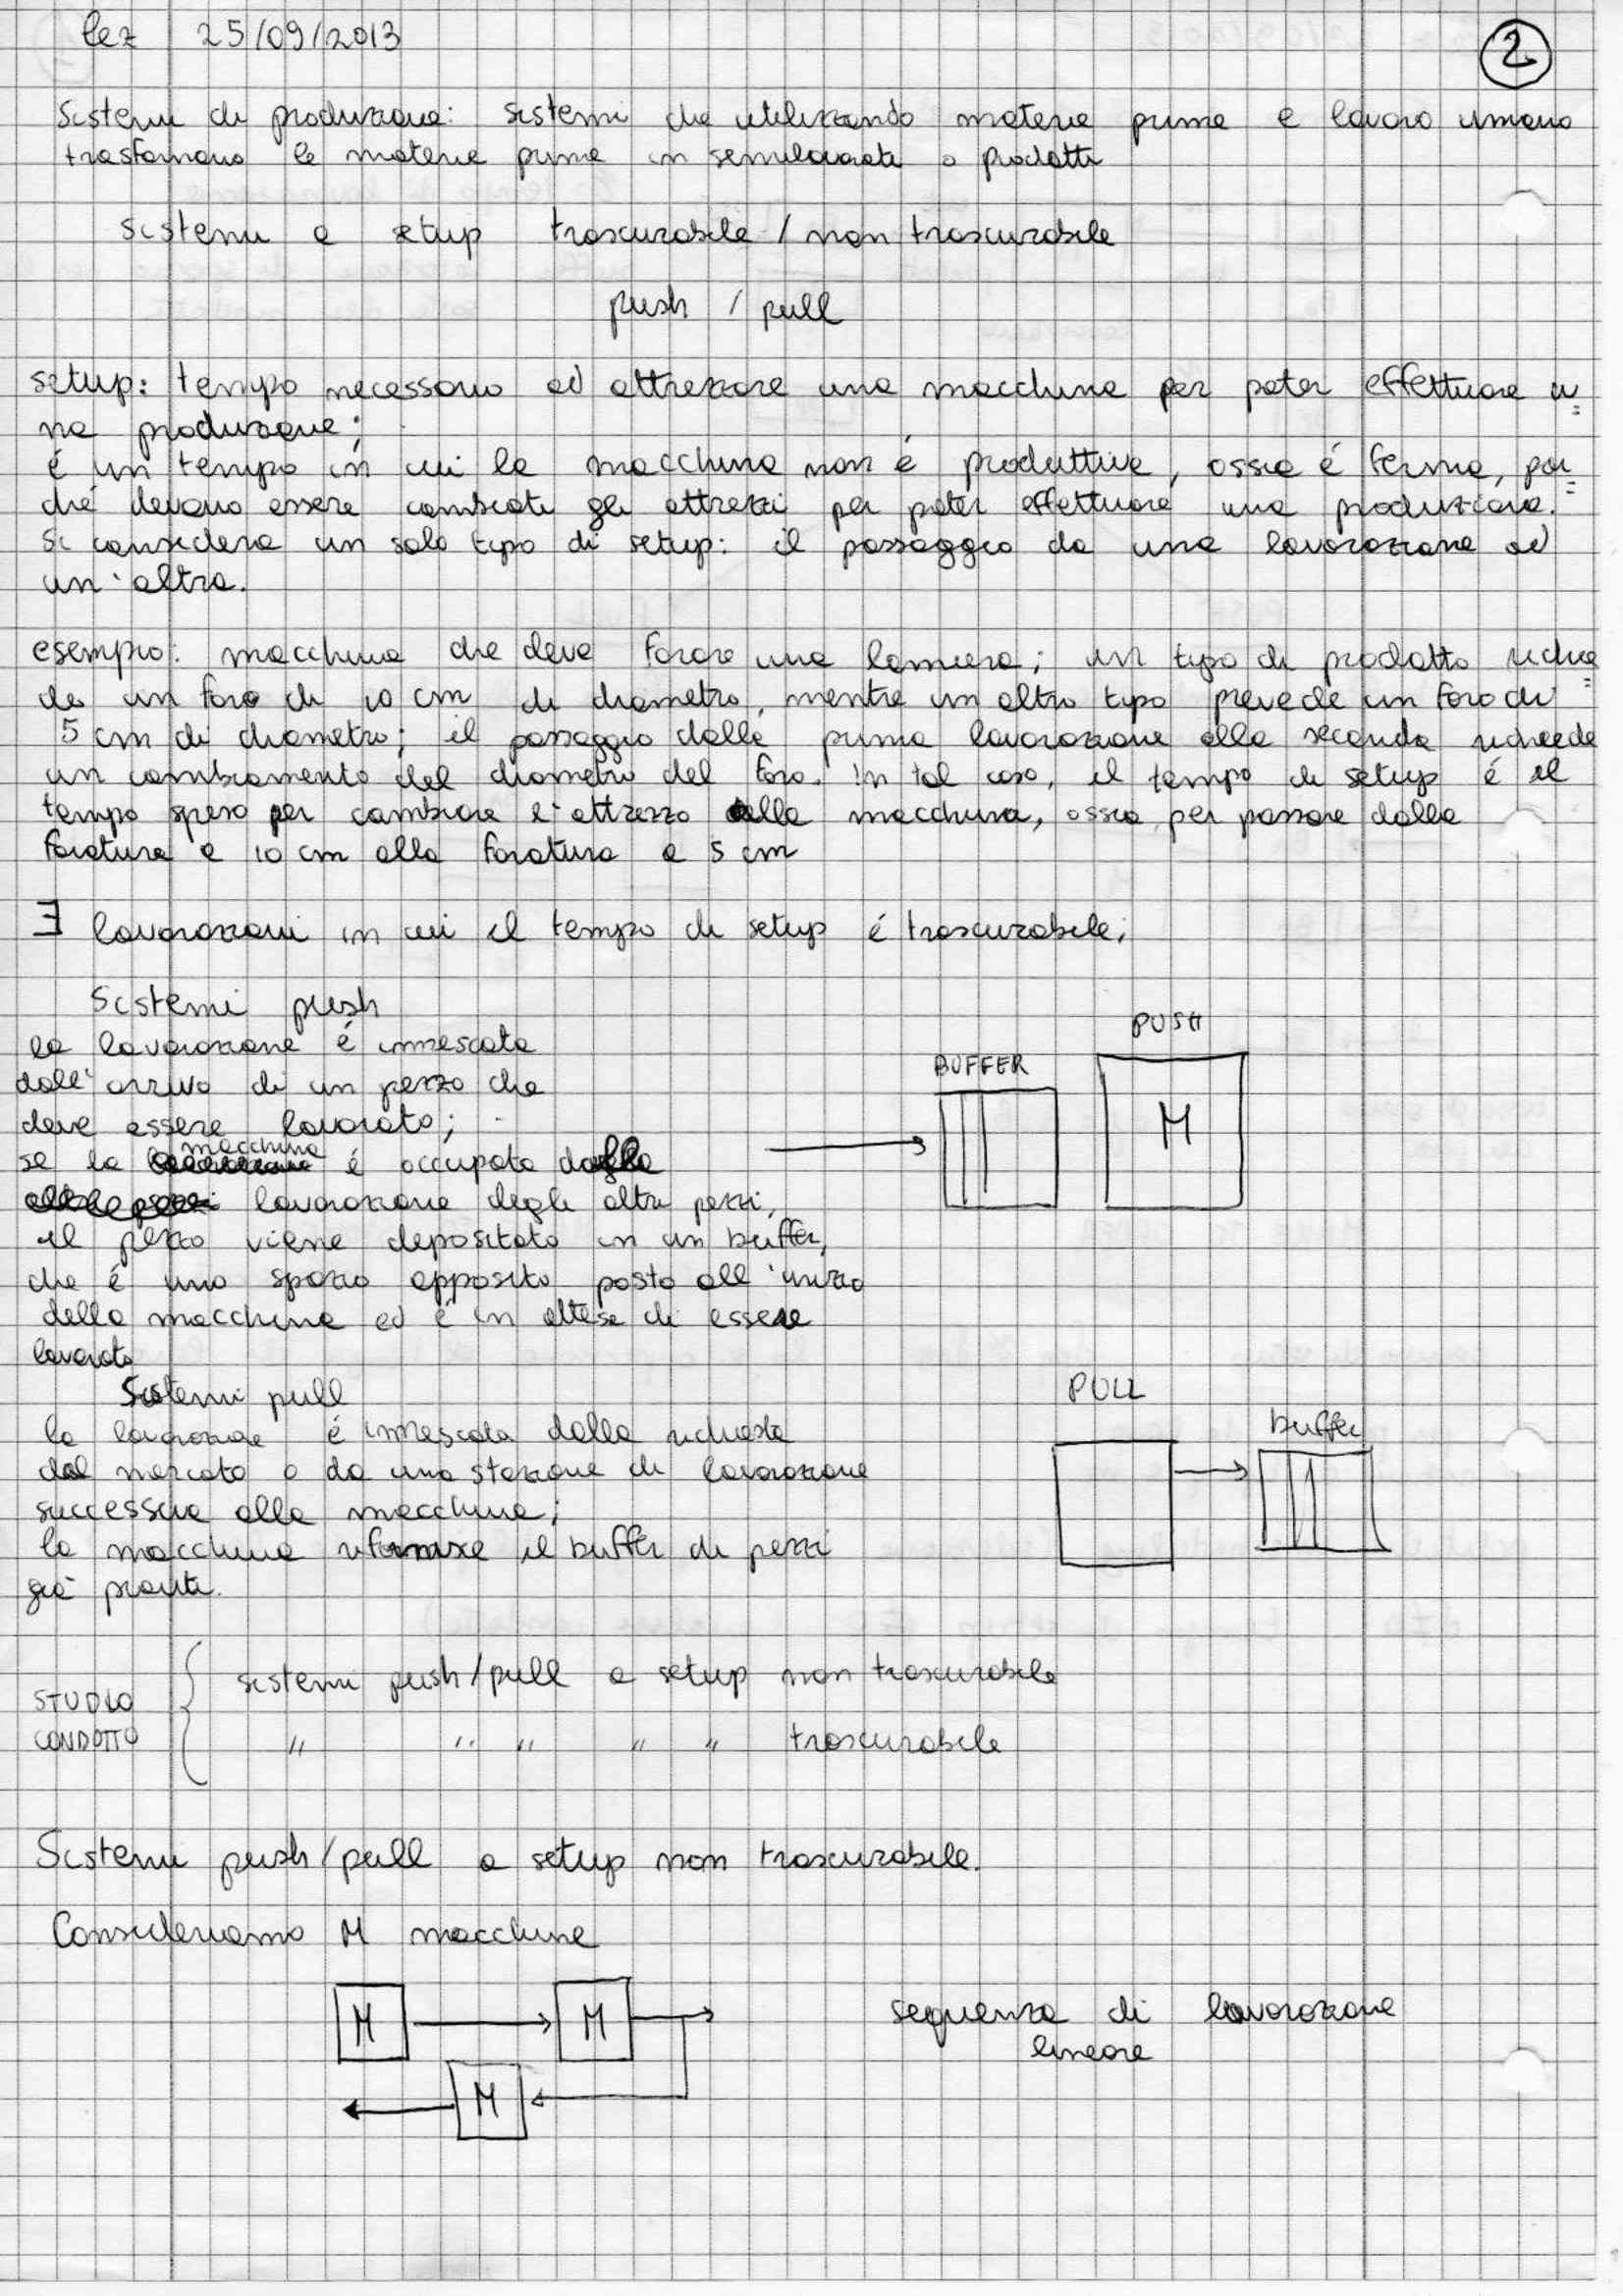 lez 25/09/2013
2
Sistemi di produzione: sistemi che utilizzando materie prime e lavoro umano
trasformano le materie prime in semilavorati o prodotti
sistemi a setup trascurabile / non trascurabile
push / pull
setup: tempo necessario ad attrezzare una macchina per poter effettuare u=
na produzione;
é un tempo in cui la macchina non é produttiva, ossia é ferma, poi=
ché devono essere cambiati gli attrezzi per poter effettuare una produzione.
Si considera un solo tipo di setup: il passaggio da una lavorazione ad
un'altra.
esempio: macchina che deve forare una lamiera; un tipo di prodotto richie=
de un foro di 10 cm di diametro, mentre un altro tipo prevede un foro di
5 cm di diametro; il passaggio dalla prima lavorazione alla seconda richiede
un cambiamento del diametro del foro. In tal caso, il tempo di setup é il
tempo speso per cambiare l'attrezzo alla macchina, ossia per passare dalla
foratura a 10 cm alla foratura a 5 cm
∃ lavorazioni in cui il tempo di setup é trascurabile;
Sistemi push
la lavorazione é innescata
dall'arrivo di un pezzo che
deve essere lavorato;
se la macchina é occupata dalla
lavorazione degli altri pezzi,
il pezzo viene depositato in un buffer,
che é uno spazio apposito posto all'inizio
della macchina ed é in attesa di essere
lavorato
PUSH
BUFFER
M
Sistemi pull
la lavorazione é innescata dalla richiesta
dal mercato o da una stazione di lavorazione
successiva alla macchina;
la macchina rifornisce il buffer di pezzi
già pronti.
PULL
buffer
STUDIO
CONDOTTO
sistemi push/pull a setup non trascurabile
" " " " " trascurabile
Sistemi push/pull a setup non trascurabile.
Consideriamo M macchine
M M
M
sequenza di lavorazione
lineare